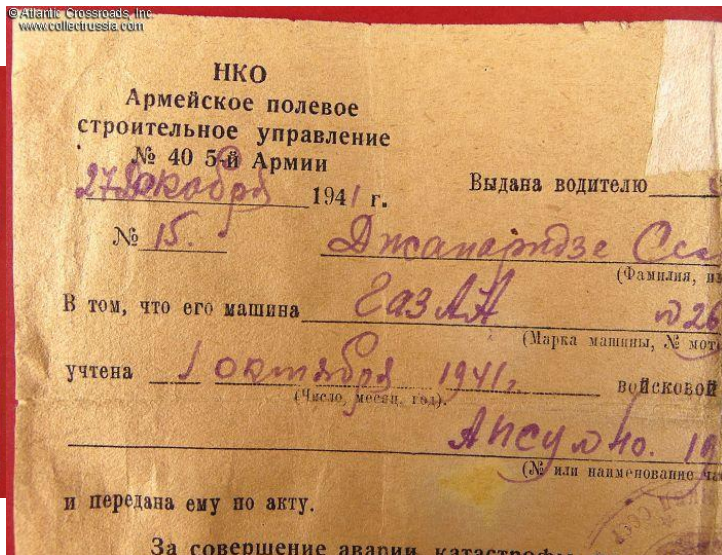 © Atlantic Crossroads, Inc.
www.collectrussia.com
НКО
Армейское полевое
строительное управление
№ 40 5-й Армии
27 декабря 1941 г.
Выдана водителю
№ 15.
Джапаридзе
(Фамилия,
В том, что его машина ГАЗ АА № 26
(Марка машины, № мот
учтена 1 октября 1941 г. войсковой
(Число, месяц, год).
АПСУ № 40.
(№ или наименование
и передана ему по акту.
За совершение аварии, катастрофы